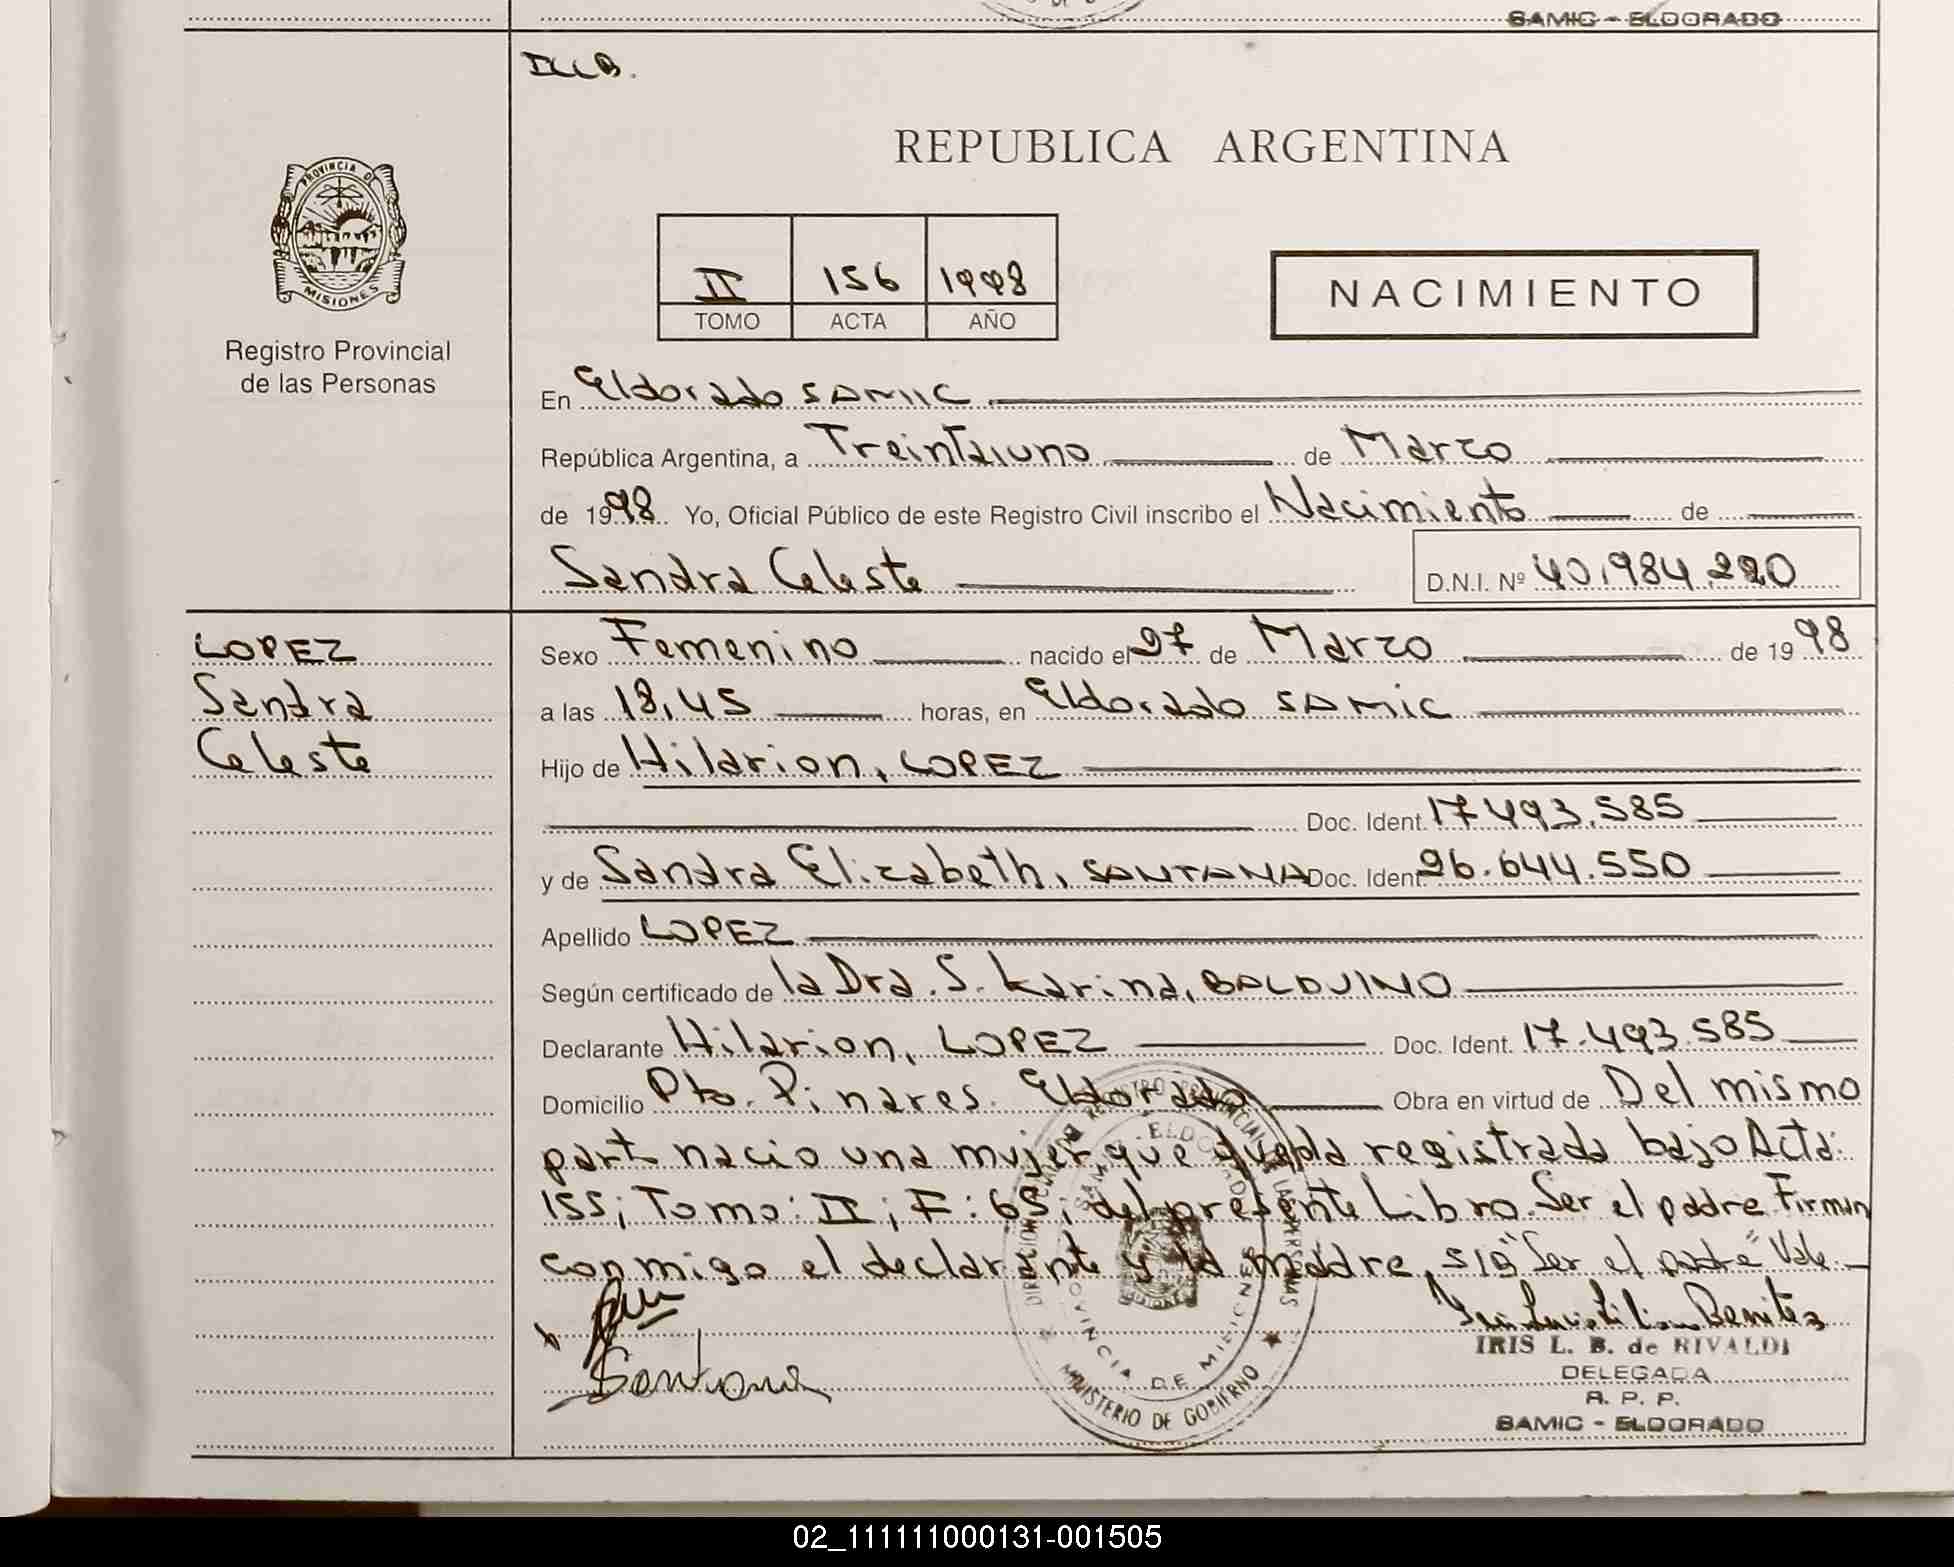 SAMIC - ELDORADO
REPUBLICA ARGENTINA
PROVINCIA DE
MISIONES
Registro Provincial
de las Personas
II 156 1998
TOMO ACTA AÑO
NACIMIENTO
En Eldorado SAMIC
República Argentina, a Treintaiuno de Marzo
de 1998. Yo, Oficial Público de este Registro Civil inscribo el Nacimiento de
Sandra Celeste D.N.I. Nº 40.984.220
LOPEZ
Sandra
Celeste
Sexo Femenino nacido el 27 de Marzo de 1998
a las 18,45 horas, en Eldorado SAMIC
Hijo de Hilarion, LOPEZ
Doc. Ident. 17.493.585
y de Sandra Elizabeth, SANTANA Doc. Ident. 26.644.550
Apellido LOPEZ
Según certificado de la Dra. S. Karina, BALDUINO
Declarante Hilarion, LOPEZ Doc. Ident. 17.493.585
Domicilio Pto. Pinares. Eldorado Obra en virtud de Del mismo
part nacio una mujer que queda registrada bajo Acta:
155; Tomo: II; F: 65; del presente Libro. Ser el padre Firman
conmigo el declarante y la madre, S/B "Ser el padre" Vale
Santana
IRIS L. B. de RIVALDI
DELEGADA
R. P. P.
SAMIC - ELDORADO
MINISTERIO DE GOBIERNO
PROVINCIA DE MISIONES
02_111111000131-001505